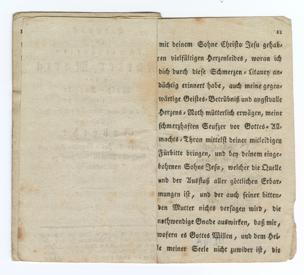 21
mit deinem Sohne Christo Jesu gehab-
ten vielfältigen Herzenleides, woran ich
dich durch diese Schmerzen-Litaney an-
dächtig erinnert habe, auch meine gegen-
wärtige Geistes-Betrübniß und angstvolle
Herzens-Noth mütterlich erwägen, meine
schmerzhaften Seufzer vor Gottes-All-
machts-Thron mittelst deiner mitleidigen
Fürbitte bringen, und bey deinem einge-
bohrnen Sohne Jesu, welcher die Quelle
und der Ausfluß aller göttlichen Erbar-
mungen ist, und der auch seiner bitten-
den Mutter nichts versagen wird, die
nothwendige Gnade auswirken, daß mir,
wofern es Gottes Willen, und dem Hei-
le meiner Seele nicht zuwider ist, die